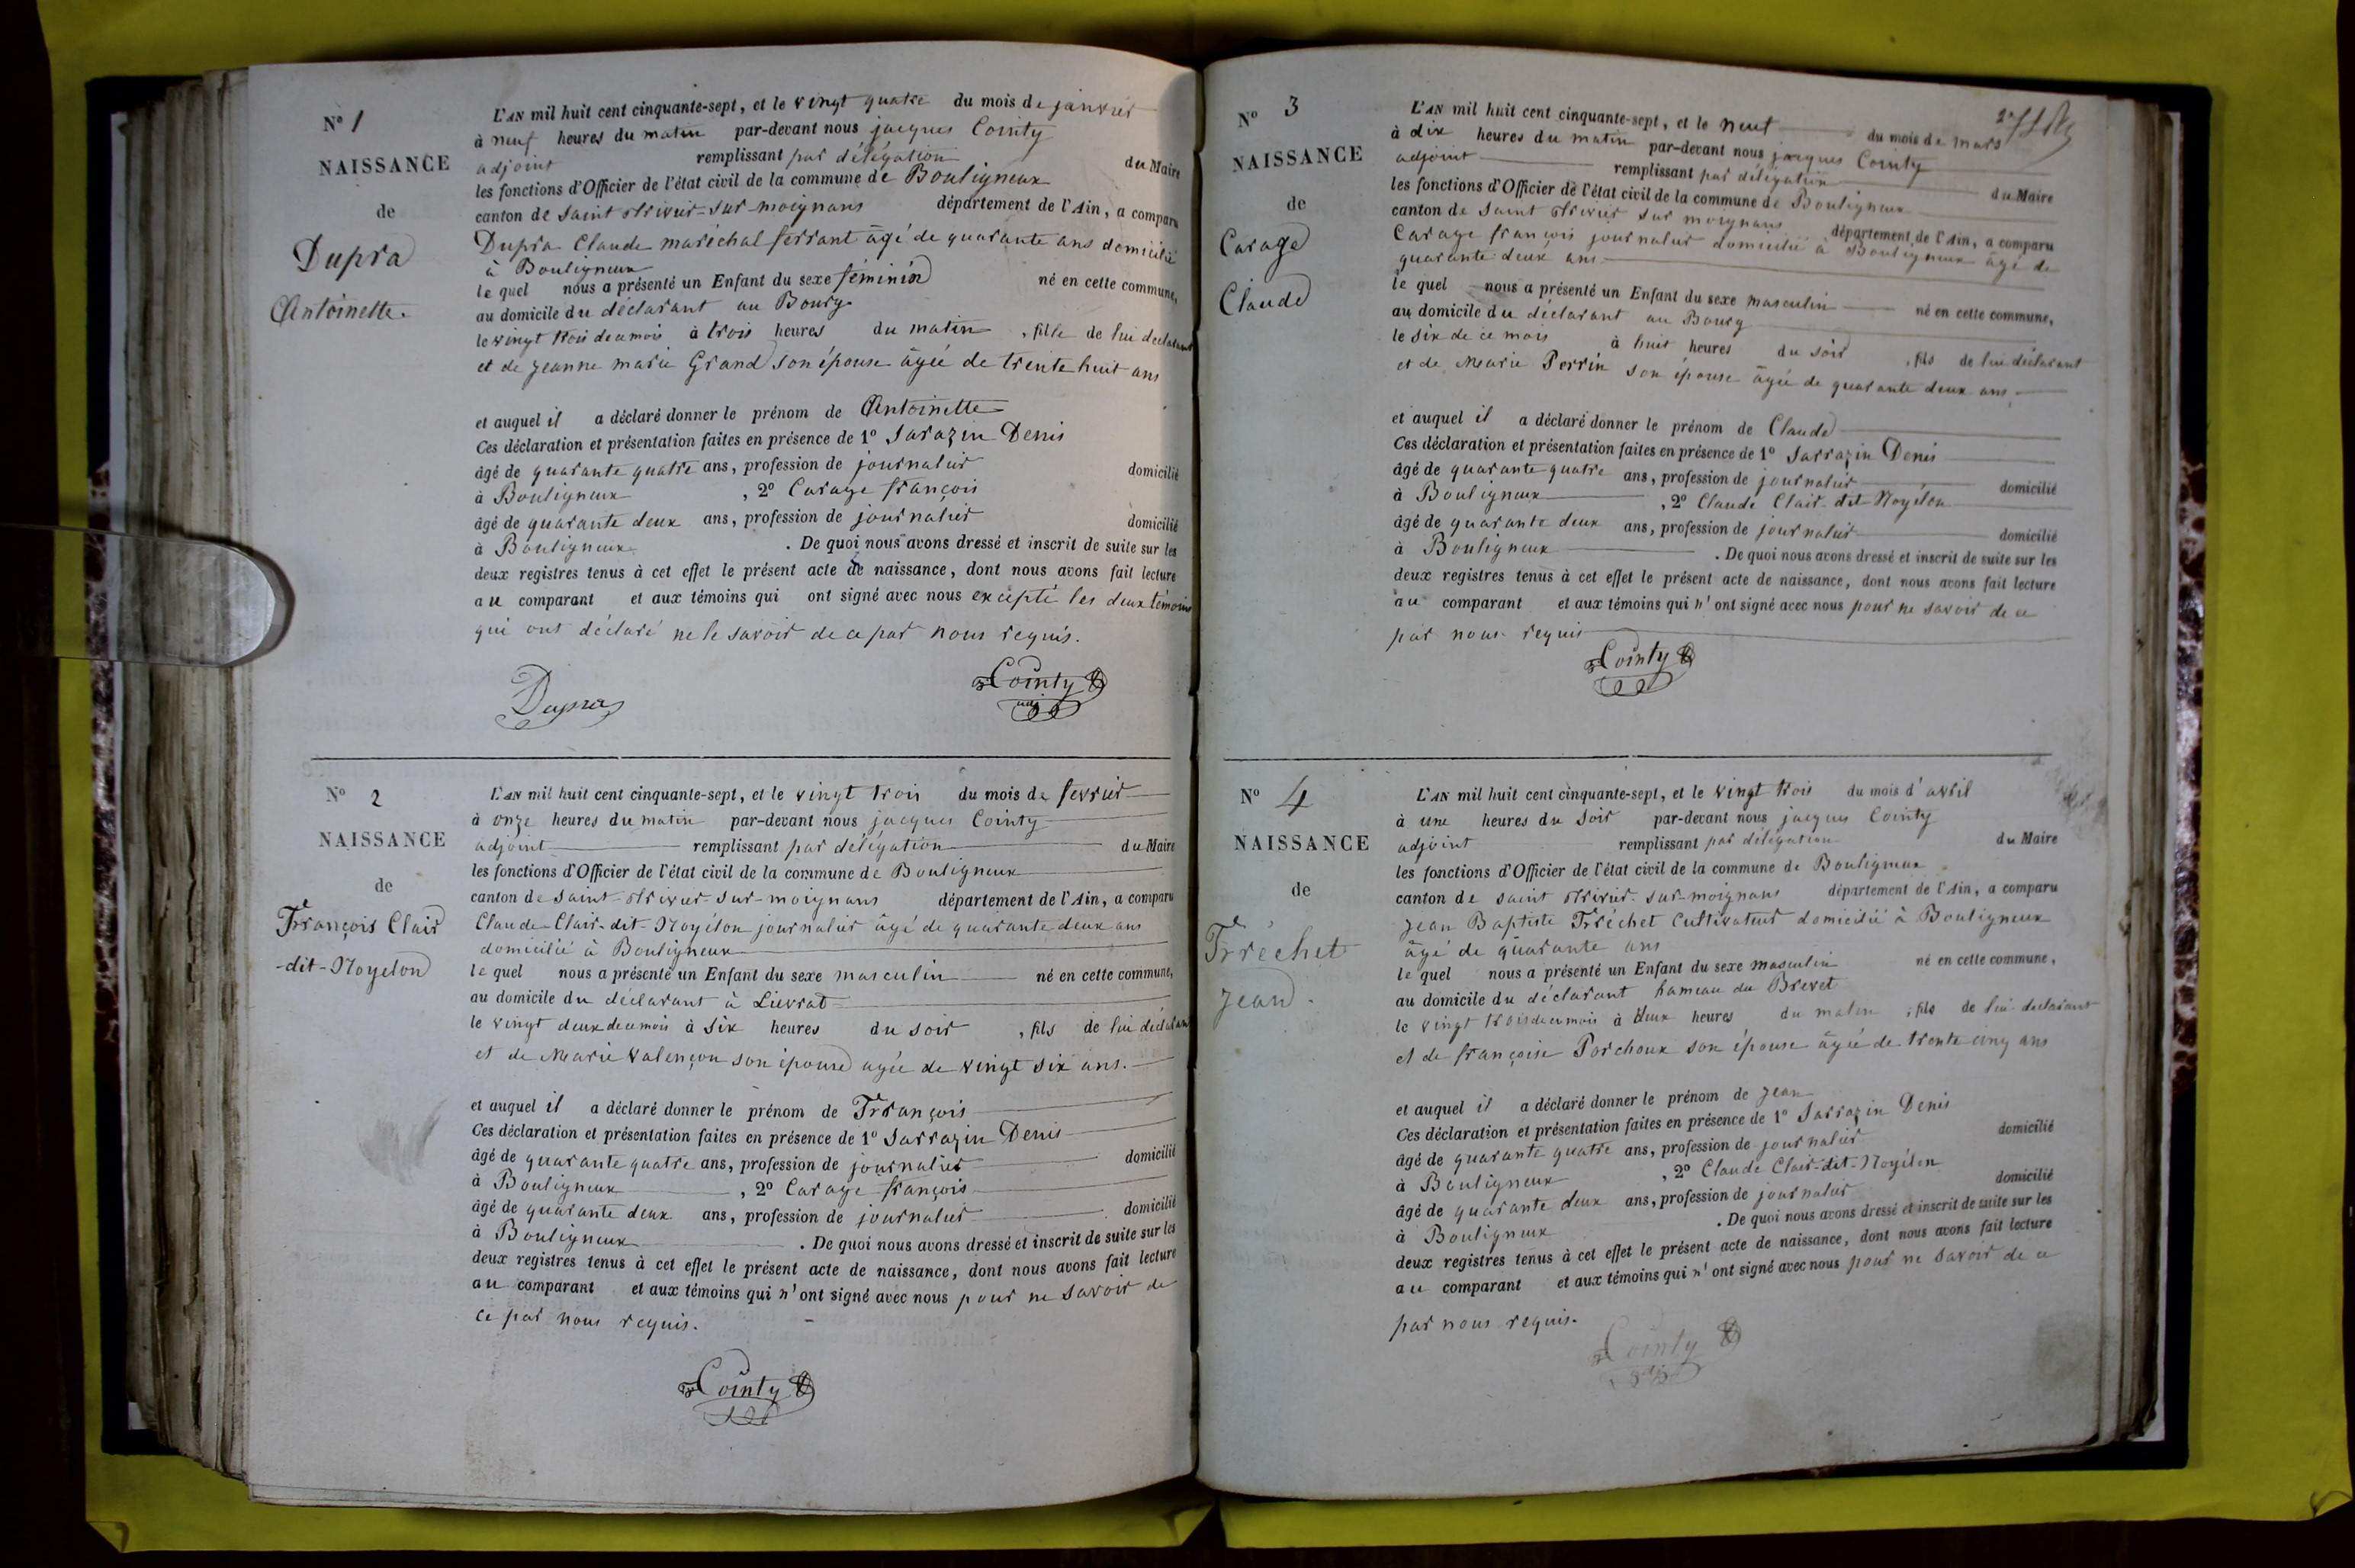 N° 1
NAISSANCE
de
Dupra
Antoinette.
L'AN mil huit cent cinquante-sept, et le vingt quatre du mois de janvier
à neuf heures du matin par-devant nous jacques Cointy
adjoint remplissant par délégation du Maire
les fonctions d'Officier de l'état civil de la commune de Bouligneux
canton de saint trivier-sur-moignans département de l'Ain, a comparu
Dupra Claude maréchal ferrant âgé de quarante ans domicilié
à Bouligneux
le quel nous a présenté un Enfant du sexe féminin né en cette commune,
au domicile du déclarant au Bourg
le vingt trois de ce mois à trois heures du matin, fille de lui déclarant
et de jeanne marie Grand son épouse âgée de trente huit ans
et auquel il a déclaré donner le prénom de Antoinette
Ces déclaration et présentation faites en présence de 1° Sarazin Denis
âgé de quarante quatre ans, profession de journalier domicilié
à Bouligneux, 2° Carage françois
âgé de quarante deux ans, profession de journalier domicilié
à Bouligneux. De quoi nous avons dressé et inscrit de suite sur les
deux registres tenus à cet effet le présent acte de naissance, dont nous avons fait lecture
au comparant et aux témoins qui ont signé avec nous excepté les deux témoins
qui ont déclaré ne le savoir de ce par nous requis.
Dupra Cointy
N° 2
NAISSANCE
de
François Clair
-dit-Noyelon
L'AN mil huit cent cinquante-sept, et le vingt trois du mois de fevrier
à onze heures du matin par-devant nous jacques Cointy
adjoint remplissant par délégation du Maire
les fonctions d'Officier de l'état civil de la commune de Bouligneux
canton de saint-trivier-sur-moignans département de l'Ain, a comparu
Claude-Clair-dit-Noyélon journalier âgé de quarante deux ans
domicilié à Bouligneux
le quel nous a présenté un Enfant du sexe masculin né en cette commune,
au domicile du déclarant à Lievrat
le vingt deux de ce mois à six heures du soir, fils de lui déclarant
et de Marie Valençon son épouse agée de vingt six ans.
et auquel il a déclaré donner le prénom de François
Ces déclaration et présentation faites en présence de 1° Sarrazin Denis
âgé de quarante quatre ans, profession de journalier domicilié
à Bouligneux, 2° Carage françois
âgé de quarante deux ans, profession de journalier domicilié
à Bouligneux. De quoi nous avons dressé et inscrit de suite sur les
deux registres tenus à cet effet le présent acte de naissance, dont nous avons fait lecture
au comparant et aux témoins qui n'ont signé avec nous pour ne savoir de
ce par nous requis.
Cointy
N° 3
NAISSANCE
de
Carage
Claude
L'AN mil huit cent cinquante-sept, et le neuf du mois de mars
à dix heures du matin par-devant nous jacques Cointy
adjoint remplissant par délégation du Maire
les fonctions d'Officier de l'état civil de la commune de Bouligneux
canton de saint trivier sur moignans département de l'Ain, a comparu
Carage françois journalier domicilié à Bouligneux âgé de
quarante deux ans
le quel nous a présenté un Enfant du sexe masculin né en cette commune,
au domicile du déclarant au Bourg
le six de ce mois à huit heures du soir, fils de lui déclarant
et de Marie Perrin son épouse âgée de quarante deux ans
et auquel il a déclaré donner le prénom de Claude
Ces déclaration et présentation faites en présence de 1° Sarrazin Denis
âgé de quarante quatre ans, profession de journalier domicilié
à Bouligneux, 2° Claude Clair-dit-Noyélon
âgé de quarante deux ans, profession de journalier domicilié
à Bouligneux. De quoi nous avons dressé et inscrit de suite sur les
deux registres tenus à cet effet le présent acte de naissance, dont nous avons fait lecture
au comparant et aux témoins qui n'ont signé avec nous pour ne savoir de ce
par nous requis
Cointy
N° 4
NAISSANCE
de
Fréchet
jean.
L'AN mil huit cent cinquante-sept, et le vingt trois du mois d'avril
à une heures du soir par-devant nous jacques Cointy
adjoint remplissant par délégation du Maire
les fonctions d'Officier de l'état civil de la commune de Bouligneux
canton de saint trivier-sur-moignans département de l'Ain, a comparu
jean Baptiste Fréchet Cultivateur domicilié à Bouligneux
âgé de quarante ans
le quel nous a présenté un Enfant du sexe masculin né en cette commune,
au domicile du déclarant hameau du Brevet
le vingt trois de ce mois à deux heures du matin, fils de lui déclarant
et de françoise Porchoux son épouse âgée de trente cinq ans
et auquel il a déclaré donner le prénom de jean
Ces déclaration et présentation faites en présence de 1° Sarrazin Denis
âgé de quarante quatre ans, profession de journalier domicilié
à Bouligneux, 2° Claude Clair-dit-Noyélon
âgé de quarante deux ans, profession de journalier domicilié
à Bouligneux. De quoi nous avons dressé et inscrit de suite sur les
deux registres tenus à cet effet le présent acte de naissance, dont nous avons fait lecture
au comparant et aux témoins qui n'ont signé avec nous pour ne savoir de ce
par nous requis.
Cointy